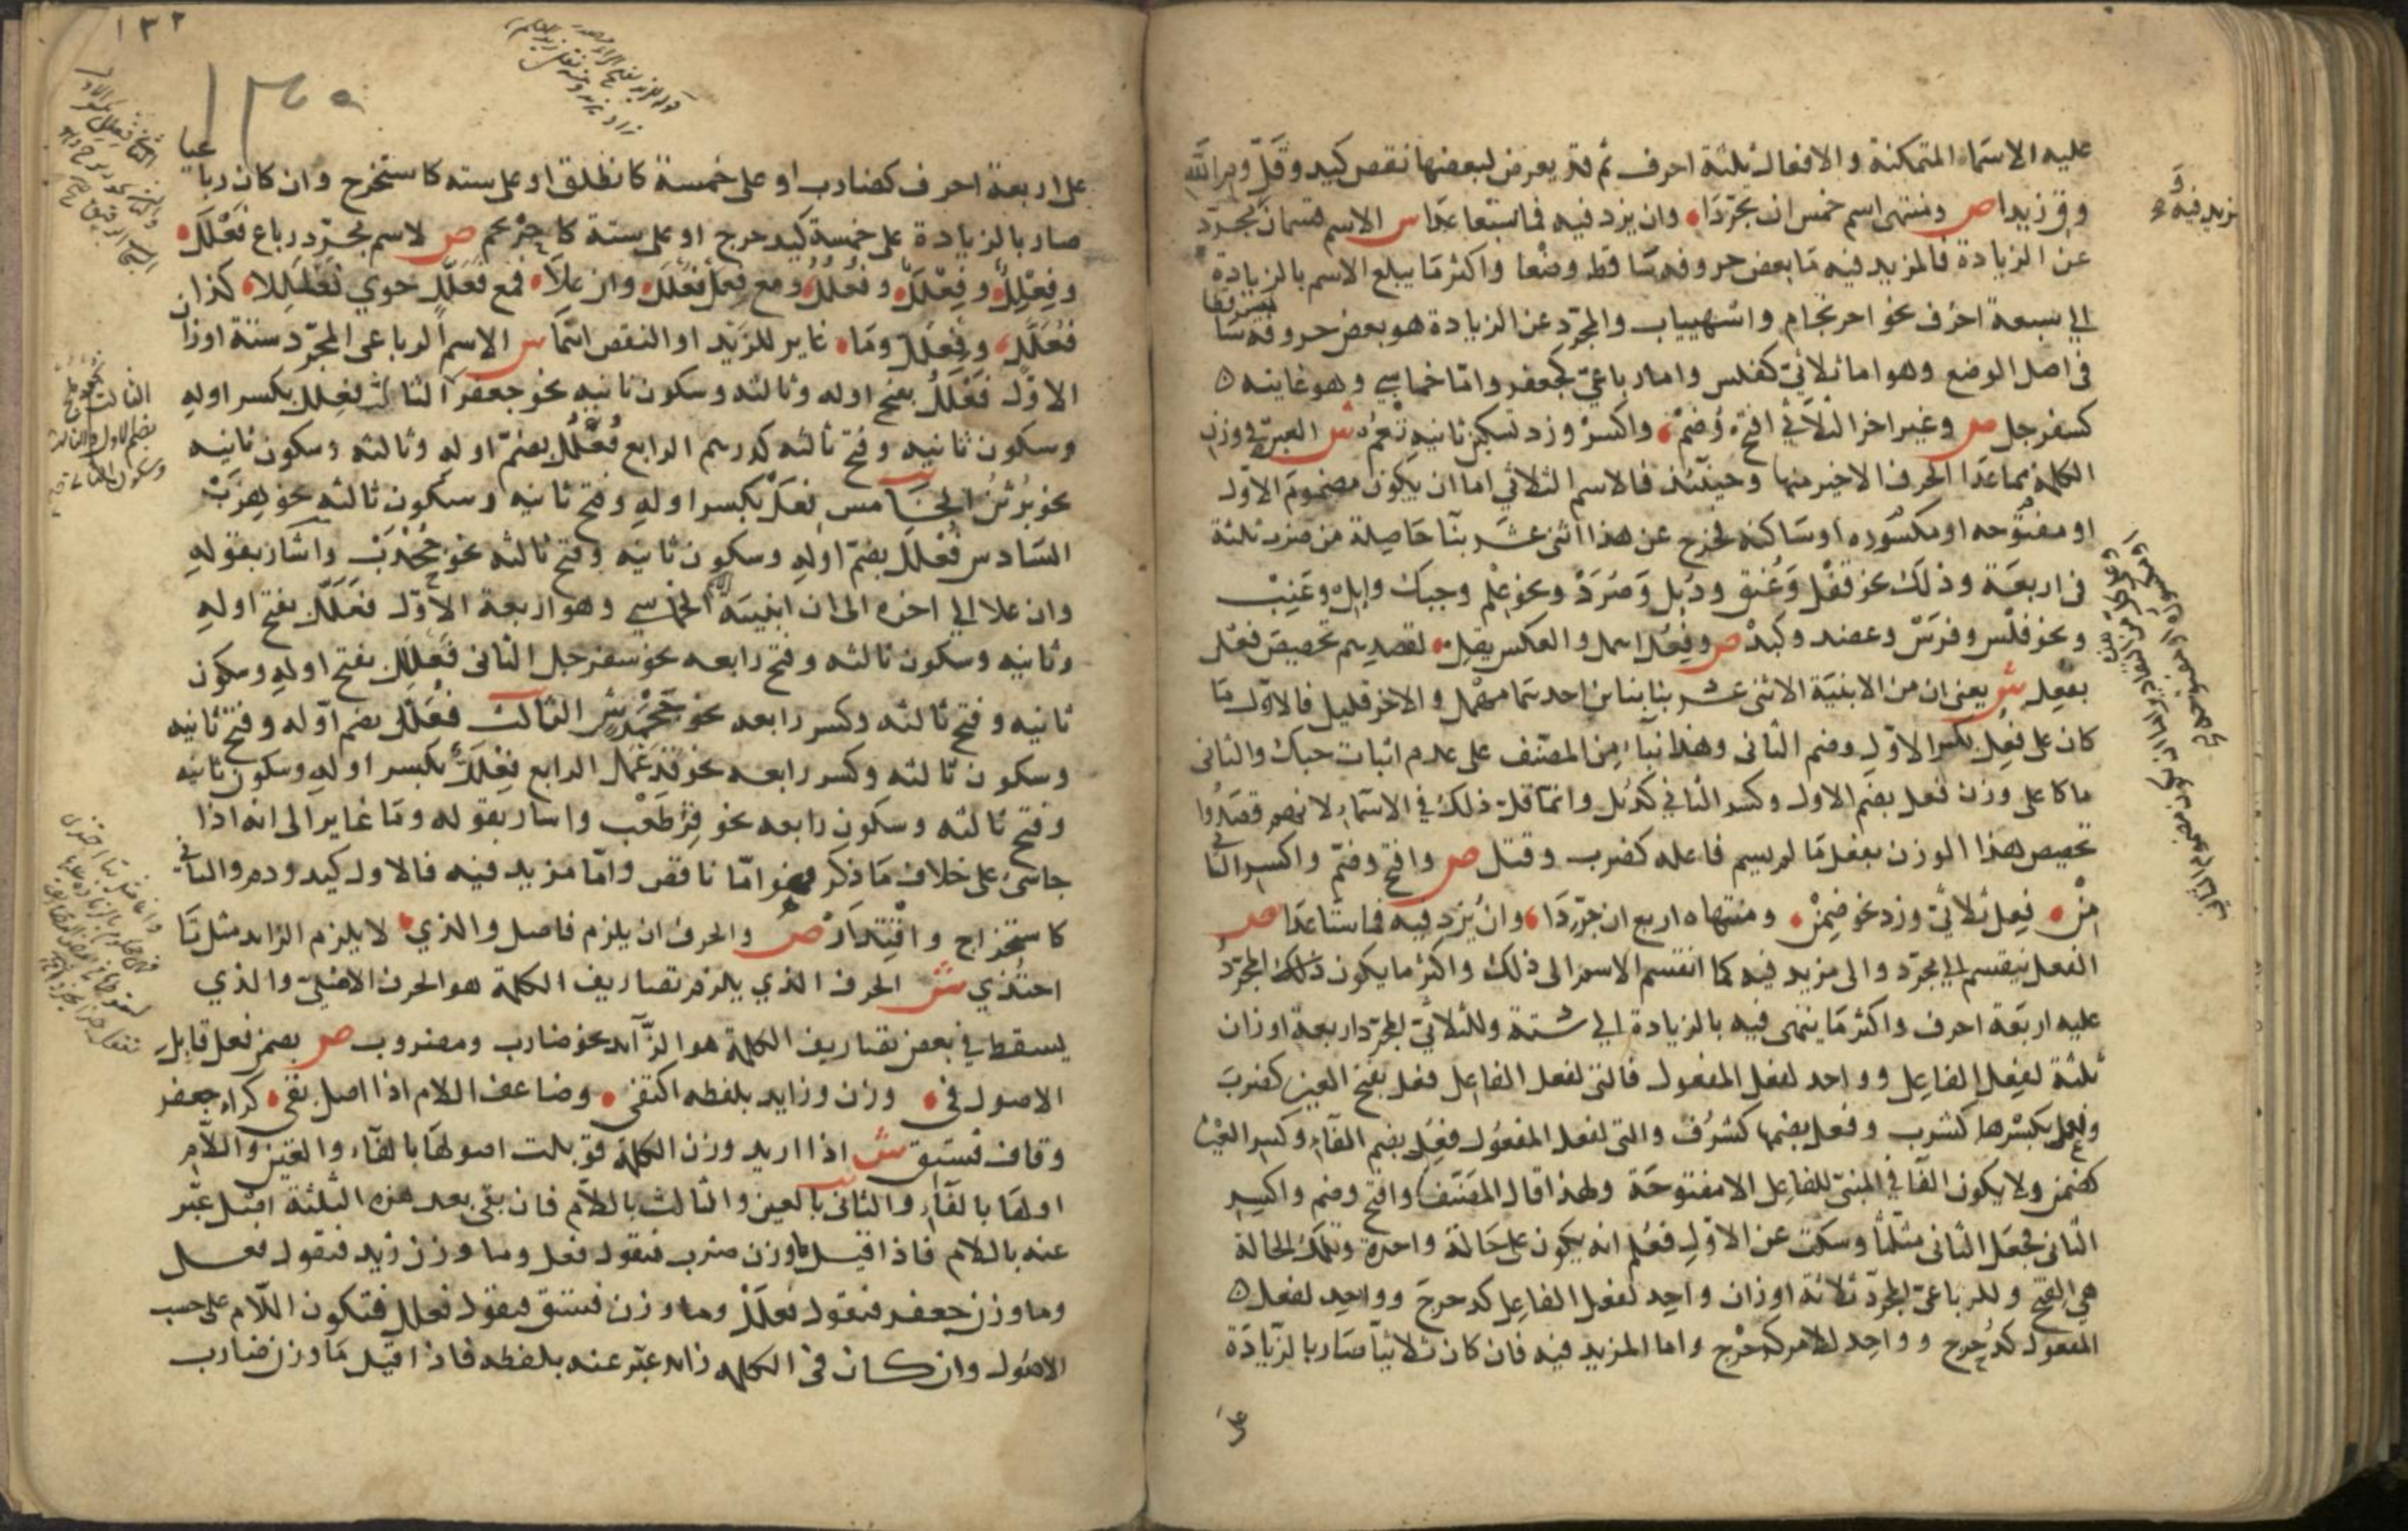 عليه الاسماء المتمكنة والافعال ثلثة احرف ثم قد يعرض لبعضها نقص كيد وقل وم الله
وق زيدا ص ومنتهى اسم خمس ان تجردا وان يزد فيه فما سبعا عدا س الاسم قسمان مجرد
عن الزيادة فالمزيد فيه ما بعض حروفه ساقط وضعا واكثر ما يبلغ الاسم بالزيادة
الي سبعة احرف نحو احرنجام واشهيباب والمجرد عن الزيادة هو بعض حروفه
فى اصل الوضع وهو اما ثلاثي كفلس واما رباعي كجعفر واما خماسي وهو غايته ه
كسفرجل ص وغير اخر الثلاثي افتح وضم واكسر وزد تسكين ثانيه تعم ش العبرة في وزن
الكلمة بما عدا الحرف الاخير منها وحينئذ فالاسم الثلاثي اما ان يكون مضموم الاول
او مفتوحه او مكسوره اوساكنه فخرج عن هذا اثنى عشر بنا حاصلة من ضرب ثلثة
فى اربعة وذلك نحو قفل وعنق ودئل وصرد ونحو علم وحبك وابل وعنب
ونحو فلس وفرس وعضد وكبد ص وفعل اهمل والعكس يقل لقصدهم تخصيص فعل
بفعل ش يعنى ان من الابنية الاثنى عشر بنا بناين احدهما مهمل والاخر قليل فالاول ما
كان على فعل بكسر الاول وضم الثانى وهذا بنا من المصنف على عدم اثبات حبك والثانى
ما كا على وزن فعل بضم الاول وكسر الثاني كدئل وانما قل ذلك في الاسماء لانهم قصدوا
تخصيص هذا الوزن بفعل ما لم يسم فاعله كضرب وقتل ص وافتح وضم واكسر الثانى
من فعل ثلاثي وزد نحو ضمن ومنتهاه اربع ان جردا وان يزد فيه فما ستا عدا ص
الفعل ينقسم الي مجرد والى مزيد فيه كما انقسم الاسم الى ذلك واكثر ما يكون ذلك المجرد
عليه اربعة احرف واكثر ما ينتهى فيه بالزيادة الي ستة وللثلاثي المجرد اربعة اوزان
ثلثة لفعل الفاعل وواحد لفعل المفعول فالتى لفعل الفاعل فعل بفتح العين كضرب
وفعل بكسرها كشرب وفعل بضمها كشرف والتى لفعل المفعول فعل بضم الفاء وكسر العين
كضمن ولا يكون الفا في المبني للفاعل الا مفتوحة ولهذا قال المصنف وافتح وضم واكسر
الثانى فجعل الثانى مثلثا وسكت عن الاول فعلم انه يكون على حالة واحدة وتلك الحالة
هي الفتح وللرباعي المجرد ثلاثة اوزان واحد لفعل الفاعل كدحرج وواحد لفعل ه
المفعول كدحرج وواحد للامر كدحرج واما المزيد فيه فان كان ثلاثيا صار بالزيادة
على
١٣٢
على اربعة احرف كضارب او على خمسة كانطلق او على سته كاستخرج وان كان رباعيا
صار بالزيادة على خمسة كيدحرج او على ستة كاحرنجم ص لاسم مجرد رباع فعلل
وفعلل وفعلل وفعلل ومع فعل فعلل وان علا فمع فعلل حوي فعللا كذا
فعلل وفعلل وما غاير للزيد او النقص انتما س الاسم الرباعى المجرد ستة اوزان
الاول فعلل بفتح اوله وثالثه وسكون ثانيه نحو جعفر الثالث فعلل بكسر اوله
وسكون ثانيه وفتح ثالثه كدرهم الرابع فعلل بضم اوله وثالثه وسكون ثانيه
نحو برثن الخامس فعل بكسر اوله وفتح ثانيه وسكون ثالثه نحو هزبر
السادس فعلل بضم اوله وسكون ثانيه وفتح ثالثه نحو جخدب واشار بقوله
وان علا الي اخره الى ان ابنية الخماسي وهو اربعة الاول فعلل بفتح اوله
وثانيه وسكون ثالثه وفتح رابعه نحو سفرجل الثانى فعللل بفتح اوله وسكون
ثانيه وفتح ثالثه وكسر رابعه نحو جحمرش الثالث فعلل بضم اوله وفتح ثانيه
وسكون ثالثه وكسر رابعه نحو قذعمل الرابع فعلل بكسر اوله وسكون ثانيه
وفتح ثالثه وسكون رابعه نحو قرطعب واشار بقوله وما غاير الى انه اذا
جاء شىء على خلاف ما ذكر فهو اما ناقص واما مزيد فيه فالاول كيد ودم والثانى
كاستخراج واقتدار ص والحرف ان يلزم فاصل والذي لا يلزم الزايد مثل تا
احتذي ش الحرف الذي يلزم تصاريف الكلمة هو الحرف الاصلي والذي
يسقط في بعض تصاريف الكلمة هو الزايد نحو ضارب ومضروب ص بضمن فعل قابل
الاصول فى وزن وزايد بلفظه اكتفى وضاعف اللام اذا اصل بقى كراء جعفر
وقاف فستق ش اذا اريد وزن الكلمة قوبلت اصولها بالفاء والعين واللام
اولها بالفاء والثانى بالعين والثالث باللام فان بقى بعد هذه الثلثة اصل عبر
عنه باللام فاذا قيل ما وزن ضرب فتقول فعل وما وزن زيد فتقول فعل
وما وزن جعفر فتقول فعلل وما وزن فستق فتقول فعلل فتكون اللام على حسب
الاصول وان كان فى الكلمه زايد عبر عنه بلفظه فاذا قيل ما وزن ضارب